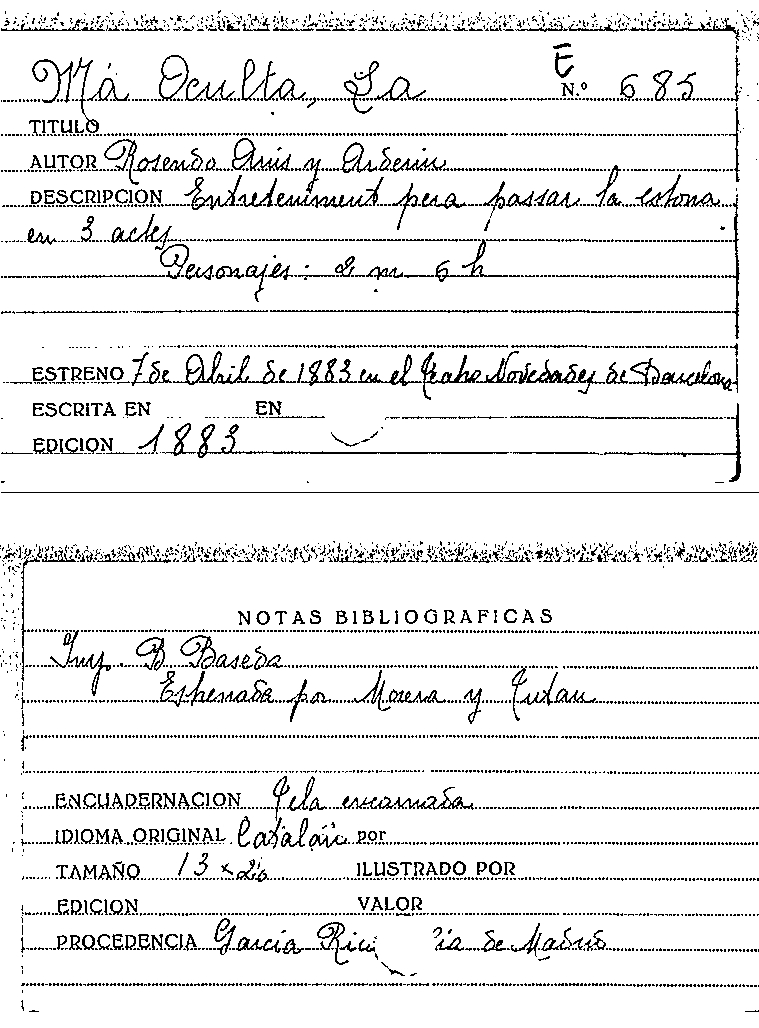 E
Má Oculta, La N.º 685
TITULO
AUTOR Rosendo Arús y Arderiu
DESCRIPCION Entreteniment pera passar la estona
en 3 actes
Personajes: 2 m 6 h
ESTRENO 7 de Abril de 1883 en el Teatro Novedades de Barcelona
ESCRITA EN EN
EDICION 1883
NOTAS BIBLIOGRAFICAS
Imp. B Baseda
Estrenada por Morera y Tutau
ENCUADERNACION Tela encarnada
IDIOMA ORIGINAL Catalán por
TAMAÑO 13 x 20 ILUSTRADO POR
EDICION VALOR
PROCEDENCIA García Rico de Madrid